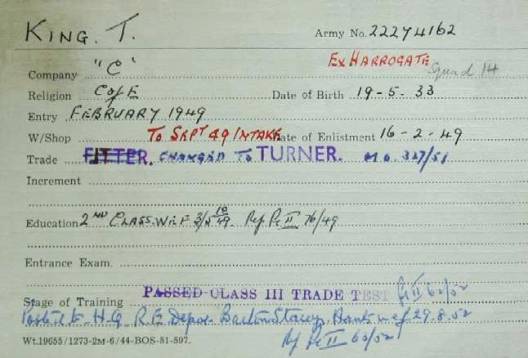 KING. T. Army No. 22274162
Ex HARROGATE
Company "C" Squad 14
Religion C of E Date of Birth 19-5-33
Entry FEBRUARY 1949
W/Shop To SEPT 49 INTAKE Date of Enlistment 16-2-49
Trade FITTER. CHANGED TO TURNER. M.O. 327/51
Increment
Education 2ND CLASS. W.E.F 3/5/49 Ref Pt II 76/49
Entrance Exam.
PASSED CLASS III TRADE TEST Pt II 60/52
Stage of Training
Posted to H.Q. R.E. Depot Barton Stacey Hants w.e.f 29.8.52
Wt.19655/1273-2m-6/44-BOS-51-597. Ref Pt II 60/52